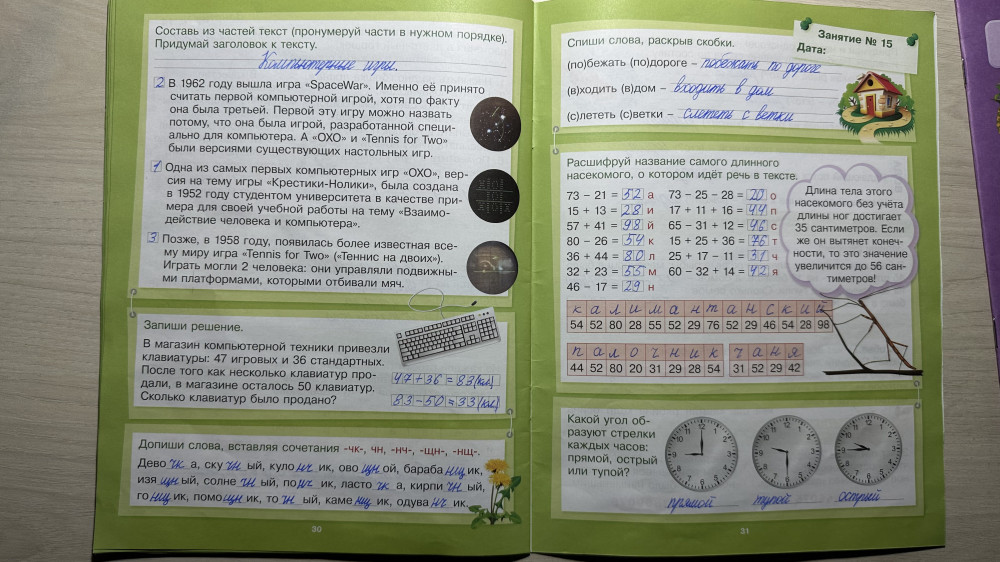 Составь из частей текст (пронумеруй части в нужном порядке).
Придумай заголовок к тексту.
Компьютерные игры.
2 В 1962 году вышла игра «SpaceWar». Именно её принято
считать первой компьютерной игрой, хотя по факту
она была третьей. Первой эту игру можно назвать
потому, что она была игрой, разработанной специ-
ально для компьютера. А «OXO» и «Tennis for Two»
были версиями существующих настольных игр.
1 Одна из самых первых компьютерных игр «OXO», вер-
сия на тему игры «Крестики-Нолики», была создана
в 1952 году студентом университета в качестве при-
мера для своей учебной работы на тему «Взаимо-
действие человека и компьютера».
3 Позже, в 1958 году, появилась более известная все-
му миру игра «Tennis for Two» («Теннис на двоих»).
Играть могли 2 человека: они управляли подвижны-
ми платформами, которыми отбивали мяч.
Запиши решение.
В магазин компьютерной техники привезли
клавиатуры: 47 игровых и 36 стандартных.
После того как несколько клавиатур про-
дали, в магазине осталось 50 клавиатур.
Сколько клавиатур было продано?
47+36=83(кл)
83-50=33(кл)
Допиши слова, вставляя сочетания -чк-, чн, -нч-, -щн-, -нщ-.
Дево чк а, ску чн ый, куло нч ик, ово щн ой, бараба нщ ик,
изя щн ый, солне чн ый, по нч ик, ласто чк а, кирпи чн ый,
го нщ ик, помо щн ик, то чн ый, каме нщ ик, одува нч ик.
30
Занятие № 15
Дата:
Спиши слова, раскрыв скобки.
(по)бежать (по)дороге – побежать по дороге
(в)ходить (в)дом – входить в дом
(с)лететь (с)ветки – слететь с ветки
Расшифруй название самого длинного
насекомого, о котором идёт речь в тексте.
73 – 21 = 52 а 73 – 25 – 28 = 20 о
15 + 13 = 28 и 17 + 11 + 16 = 44 п
57 + 41 = 98 й 65 – 31 + 12 = 46 с
80 – 26 = 54 к 15 + 25 + 36 = 76 т
36 + 44 = 80 л 25 + 17 – 11 = 31 ч
32 + 23 = 55 м 60 – 32 + 14 = 42 я
46 – 17 = 29 н
Длина тела этого
насекомого без учёта
длины ног достигает
35 сантиметров. Если
же он вытянет конеч-
ности, то это значение
увеличится до 56 сан-
тиметров!
к а л и м а н т а н с к и й
54 52 80 28 55 52 29 76 52 29 46 54 28 98
п а л о ч н и к ч а н я
44 52 80 20 31 29 28 54 31 52 29 42
Какой угол об-
разуют стрелки
каждых часов:
прямой, острый
или тупой?
прямой тупой острый
31